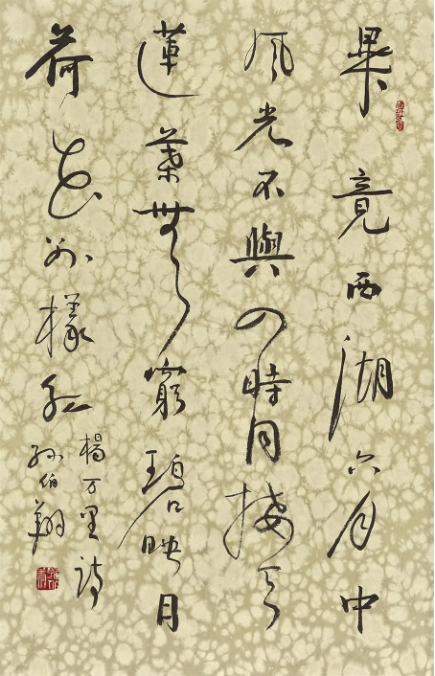 畢竟西湖六月中
风光不與四時同接天
蓮葉無窮碧映日
荷花別樣紅
楊万里詩
孫伯翔